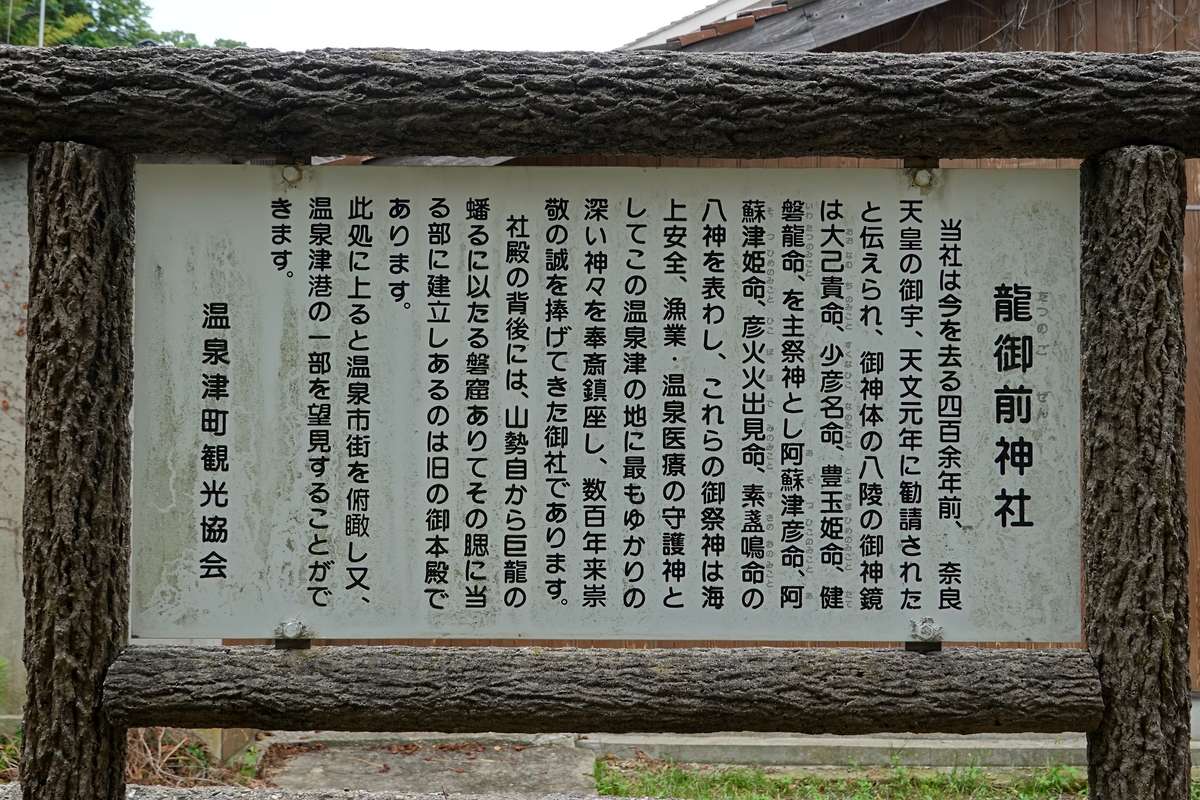 龍御前神社
当社は今を去る四百余年前、奈良
天皇の御宇、天文元年に勧請された
と伝えられ、御神体の八陵の御神鏡
は大己貴命、少彦名命、豊玉姫命、健
磐龍命、を主祭神とし阿蘇津彦命、阿
蘇津姫命、彦火火出見命、素盞鳴命の
八神を表わし、これらの御祭神は海
上安全、漁業・温泉医療の守護神と
してこの温泉津の地に最もゆかりの
深い神々を奉斎鎮座し、数百年来崇
敬の誠を捧げてきた御社であります。
社殿の背後には、山勢自から巨龍の
蟠るに以たる磐窟ありてその腮に当
る部に建立しあるのは旧の御本殿で
あります。
此処に上ると温泉市街を俯瞰し又、
温泉津港の一部を望見することがで
きます。
温泉津町観光協会